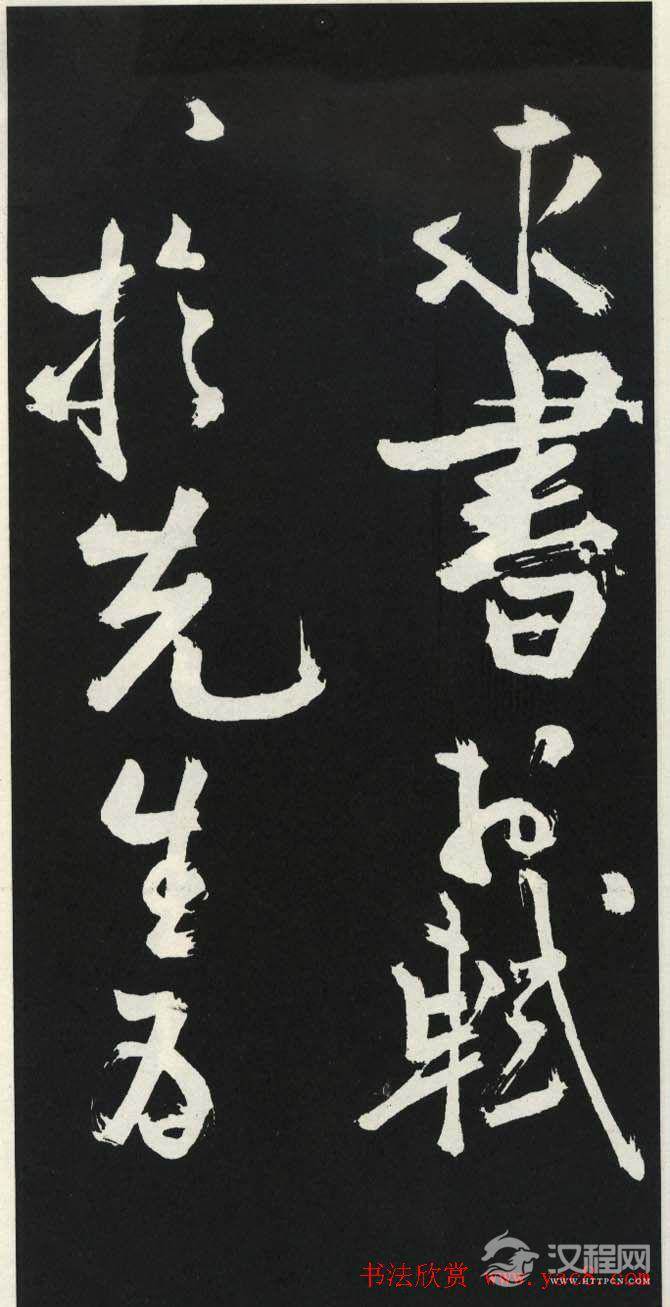 求書於軾
々於先生為
汉程网
书法欣赏
WWW.HTTPCN.COM